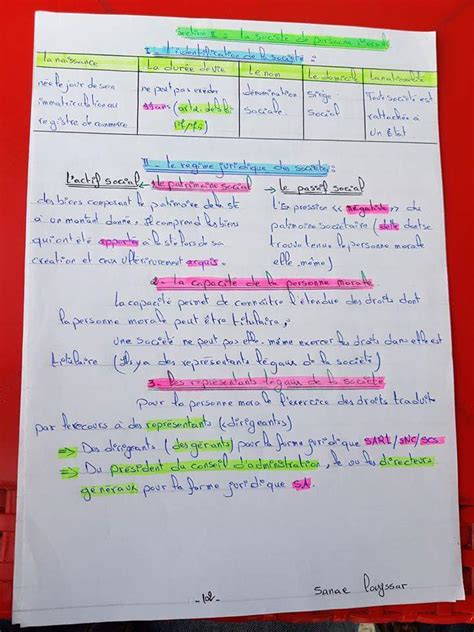 Section II : La société de personne Morale
I - l'identification de la société :
La naissance | La durée de vie | Le nom | Le domicile | La nationalité
née le jour de son | ne peut pas excéder | dénomination | Siège | Toute société est
immatriculation au | 99 ans (art 2. | Sociale. | Social | rattachée à
registre de commerce | un État
II - le régime juridique des sociétés :
L'actif social ← le patrimoine social → le passif social
des biens composant le patrimoine de la sté
à un moment donné, il comprend les biens
qui ont été apportés à la sté lors de sa
création et ceux ultérieurement acquis.
L'Expression « négative » du
patrimoine sociétaire (dette dont se
trouve tenue la personne morale
elle même)
2 - La capacité de la personne morale
la capacité permet de connaître l'étendue des droits dont
la personne morale peut être titulaire,
une société ne peut pas elle même exercer les droits dont elle est
titulaire (il y a des représentants légaux de la société)
3. Les représentants légaux de la société
Pour la personne morale l'exercice des droits traduits
par le recours à des représentants (dirigeants)
⇒ Des dirigeants (des gérants) pour la forme juridique SARL/SNC/SCS
⇒ Du président du conseil d'administration, le ou les directeurs
généraux pour la forme juridique SA.
Sanae Louyssar